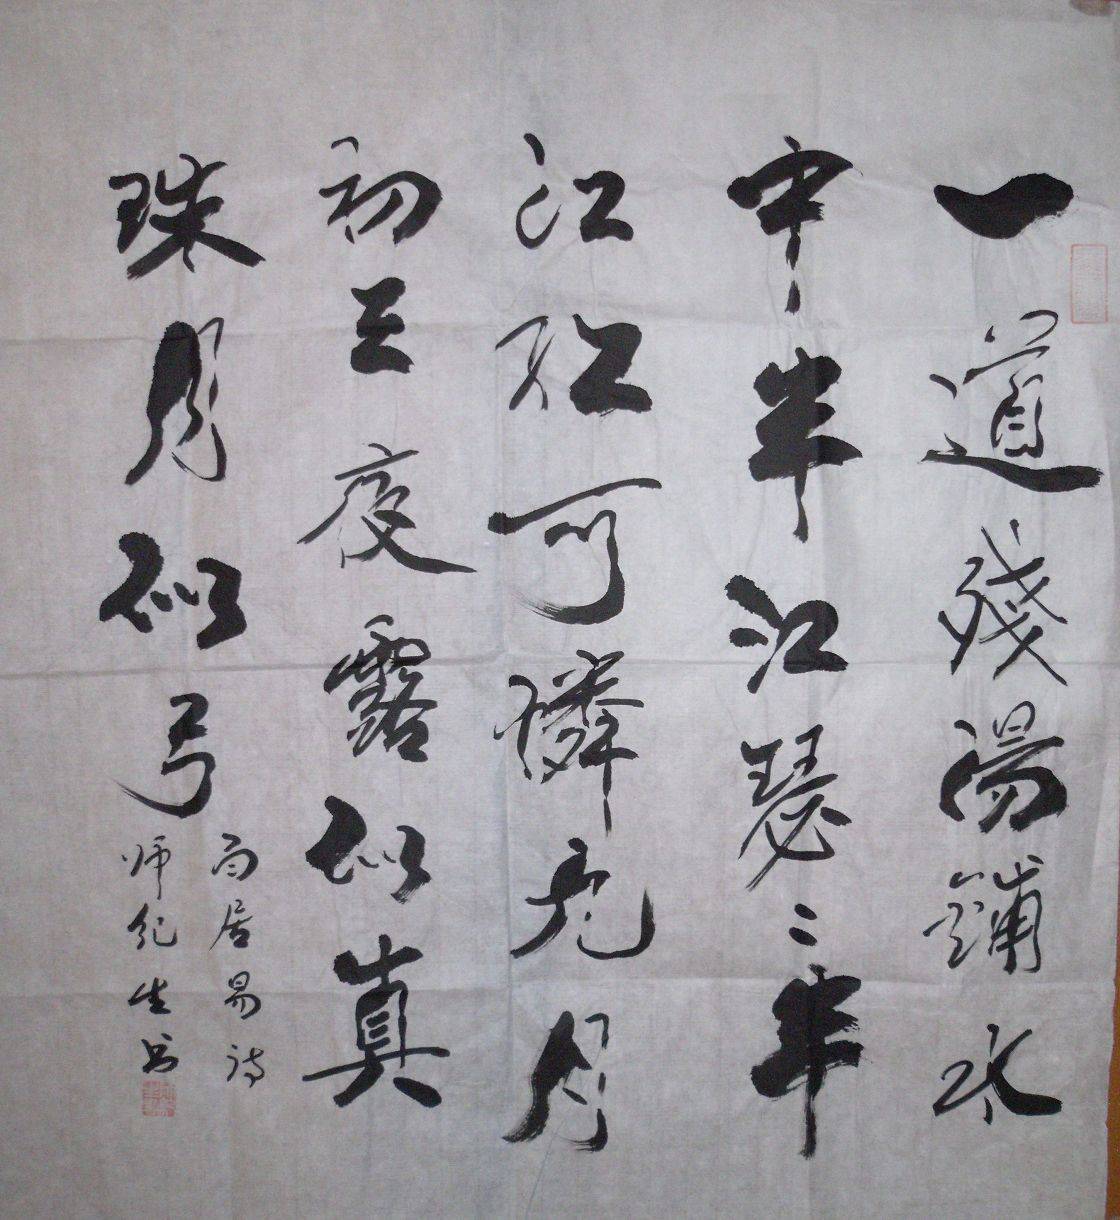 一道殘湯鋪水
中半江瑟々半
江紅可憐九月
初三夜露似真
珠月似弓
白居易诗
师纪生书